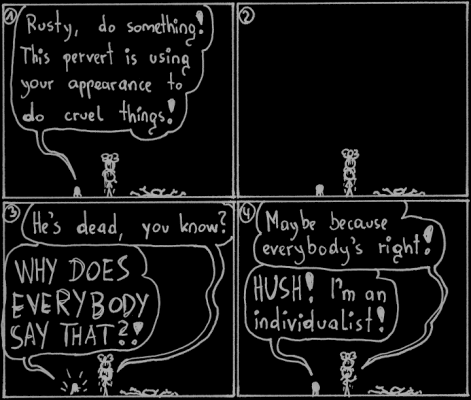 1
Rusty, do something!
This pervert is using
your appearance to
do cruel things!
2
3
He's dead, you know?
WHY DOES
EVERYBODY
SAY THAT?!
4
Maybe because
everybody's right!
HUSH! I'm an
individualist!